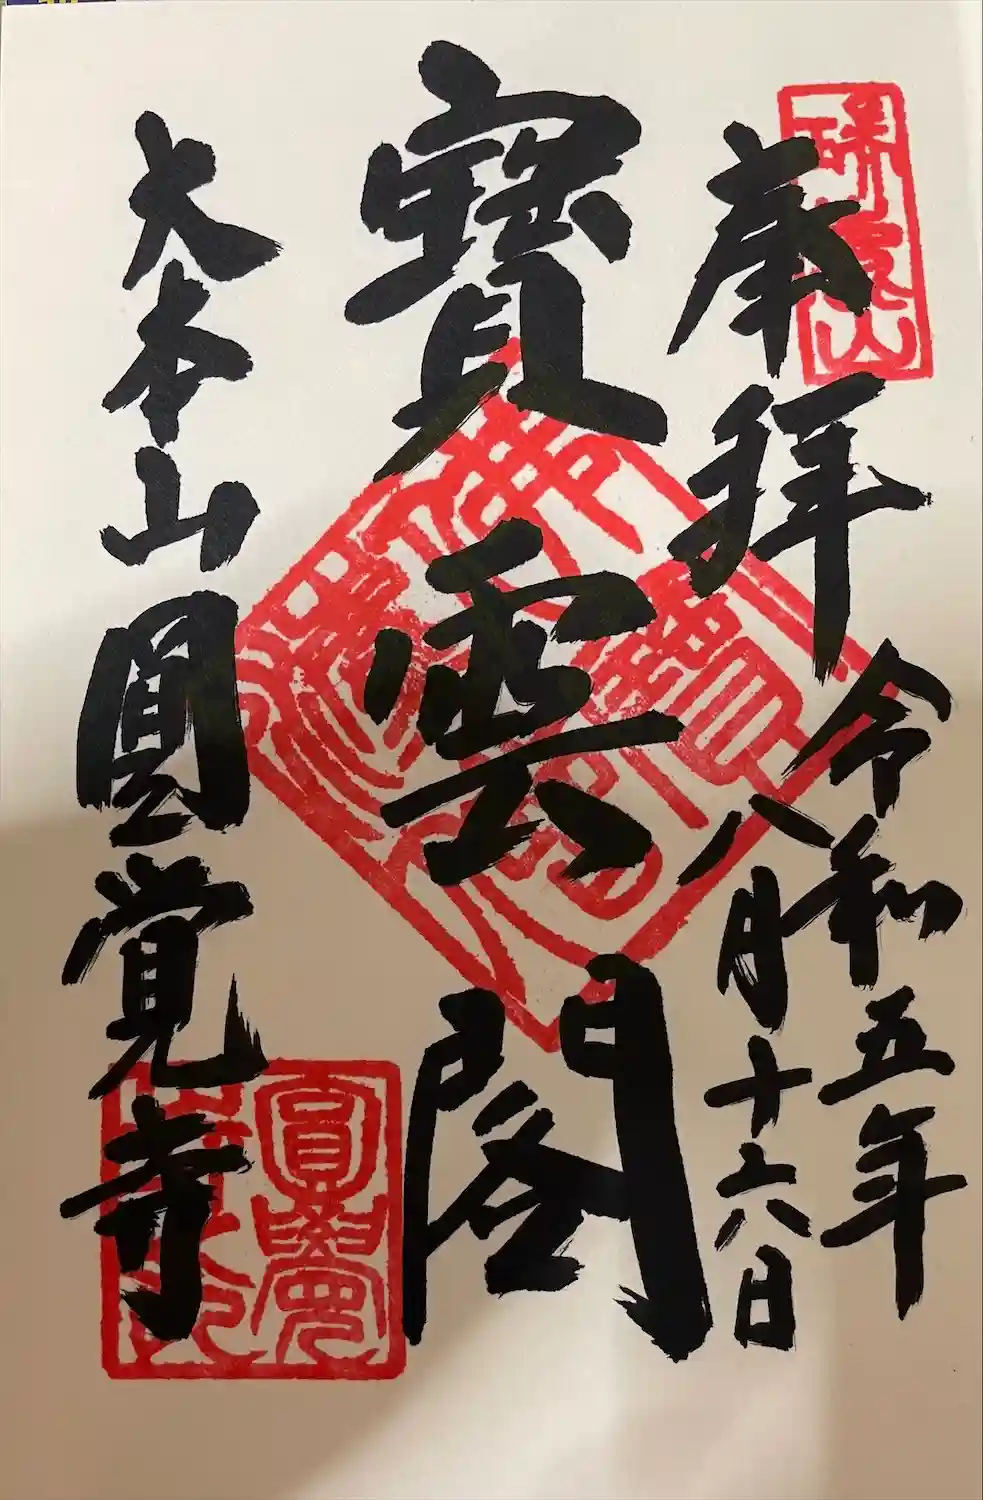 奉拝
令和五年
八月十六日
寶雲閣
大本山圓覚寺
瑞鹿山